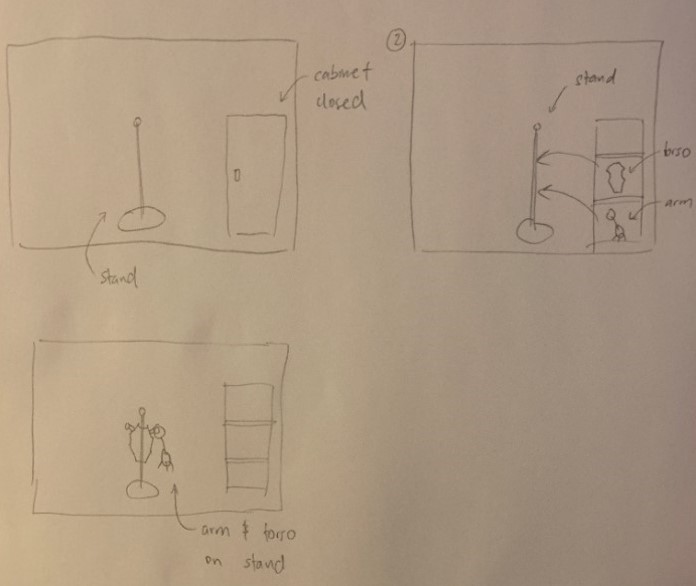 cabinet
closed
stand
2
stand
torso
arm
arm & torso
on stand